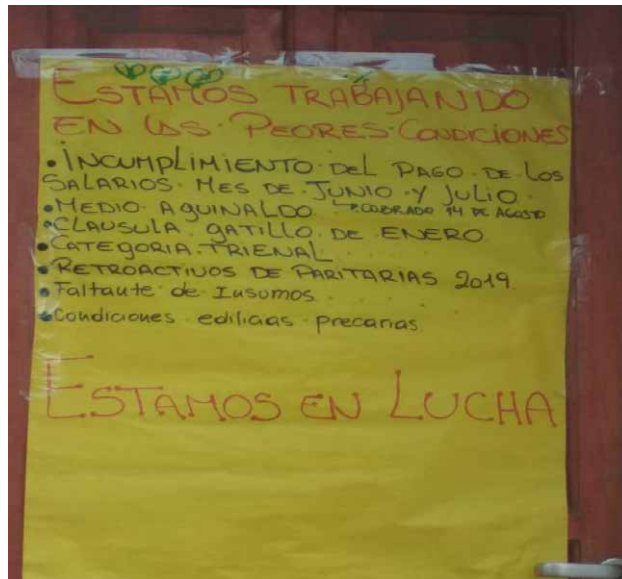 ESTAMOS TRABAJANDO
EN LAS PEORES CONDICIONES
• INCUMPLIMIENTO DEL PAGO DE LOS
SALARIOS MES DE JUNIO Y JULIO.
• MEDIO AGUINALDO ↳ COBRADO 14 DE AGOSTO
• CLAUSULA GATILLO DE ENERO
• CATEGORIA TRIENAL
• RETROACTIVOS DE PARITARIAS 2019
• Faltante de Insumos
• Condiciones edilicias precarias
ESTAMOS EN LUCHA